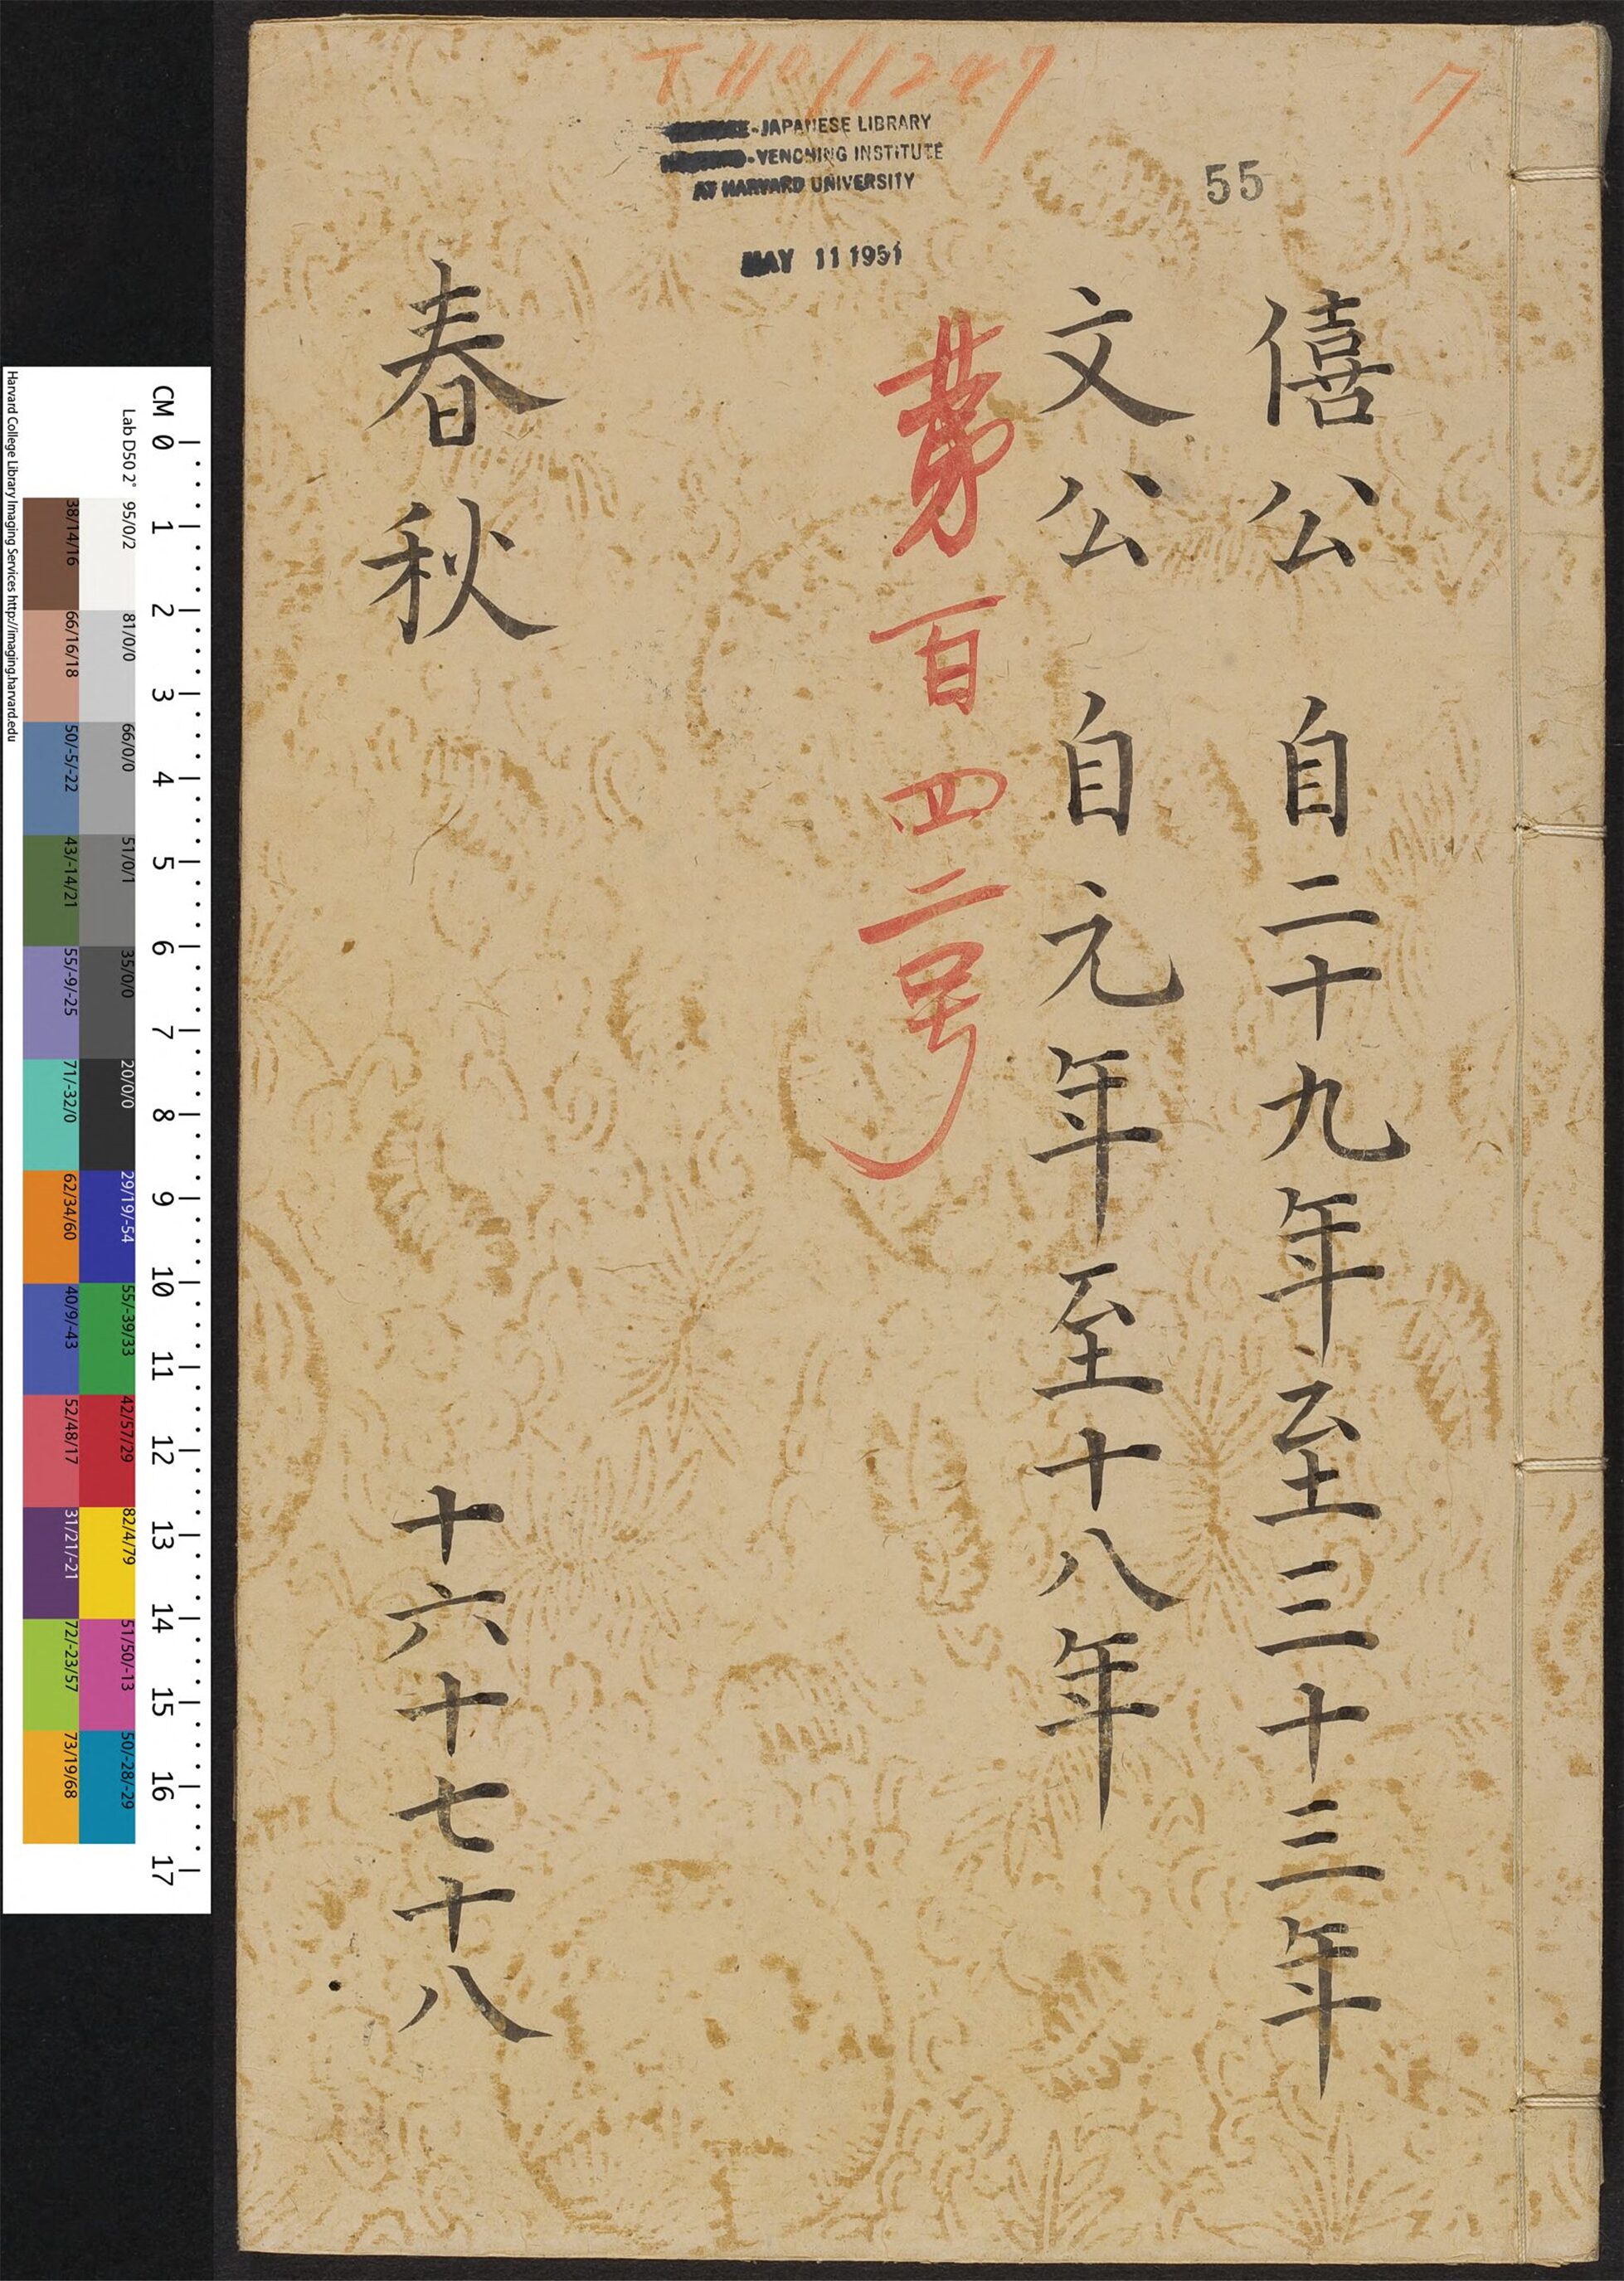 T 110/1247
7
-JAPANESE LIBRARY
-YENCHING INSTITUTE
AT HARVARD UNIVERSITY
MAY 11 1951
55
僖公 自二十九年至三十三年
文公 自元年至十八年
第百四二号
春秋 十六十七十八
CM 0 1 2 3 4 5 6 7 8 9 10 11 12 13 14 15 16 17
Lab D50 2° 95/0/2 81/0/0 66/0/0 51/0/1 35/0/0 20/0/0 29/19/-54 55/-39/33 42/57/29 82/4/79 51/50/-13 50/-28/-29
38/14/16 66/16/18 50/-5/-22 43/-14/21 55/-9/-25 71/-32/0 62/34/60 40/9/-43 52/48/17 31/21/-21 72/-23/57 73/19/68
Harvard College Library Imaging Services http://imaging.harvard.edu